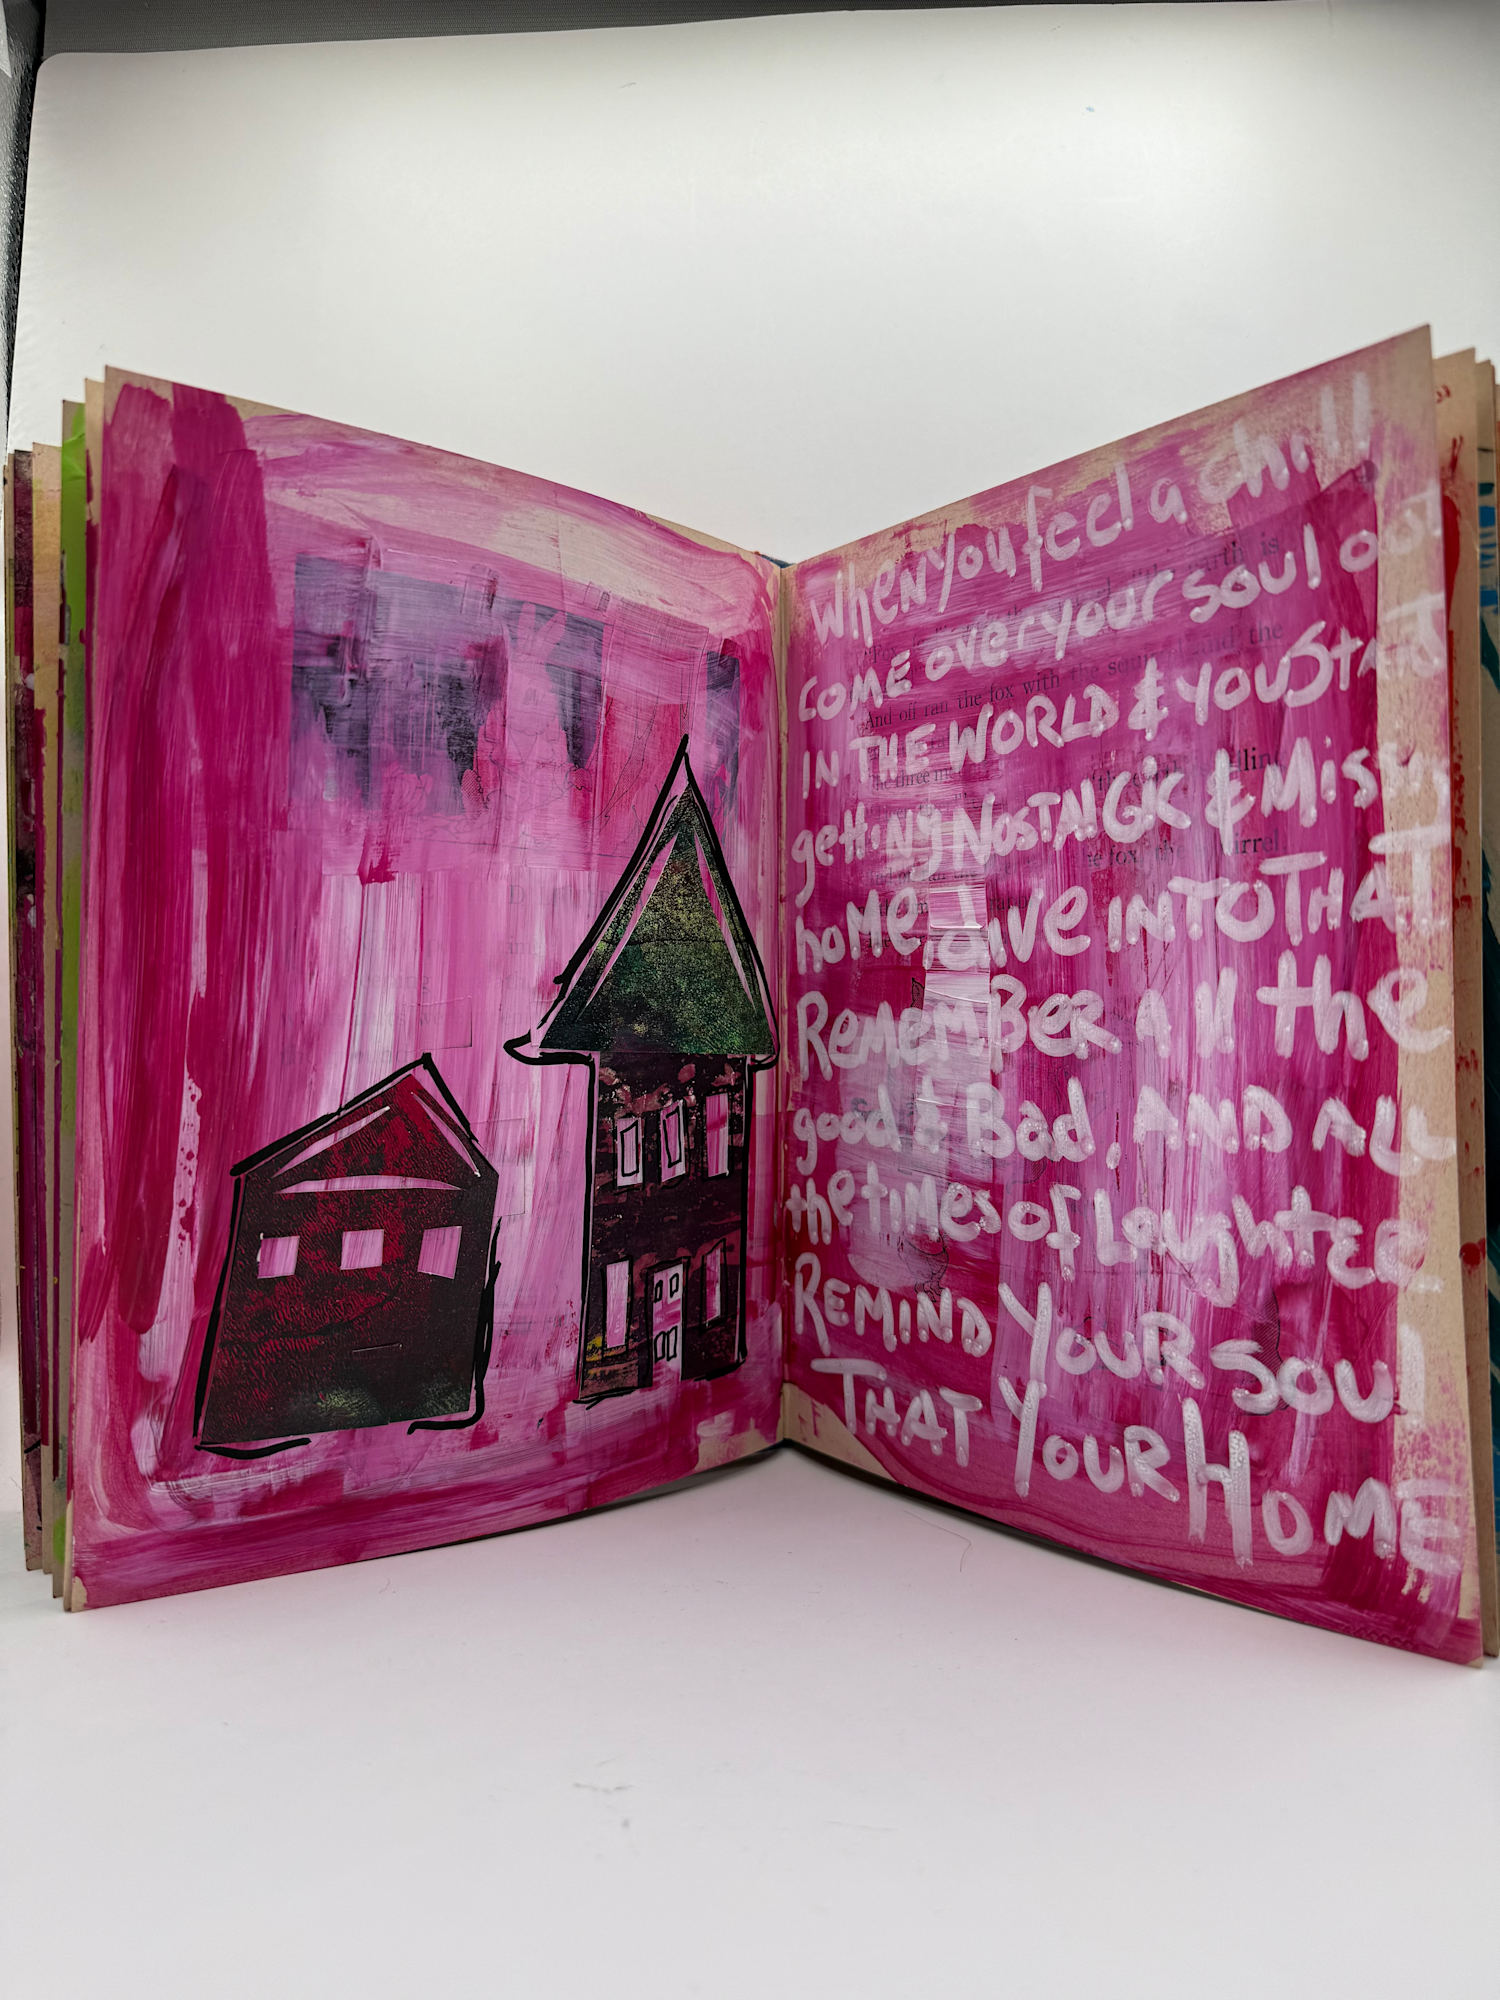 When you feel a chill
COME over your soul out
IN THE WORLD & YOU START
getting NOSTALGIC & Miss
home, dive INTO THAT
RemeMBer All the
good & Bad, AND ALL
the times of Laughter
REMIND YOUR SOUL
THAT YOUR HOME
And off ran the fox with the squirrel and the